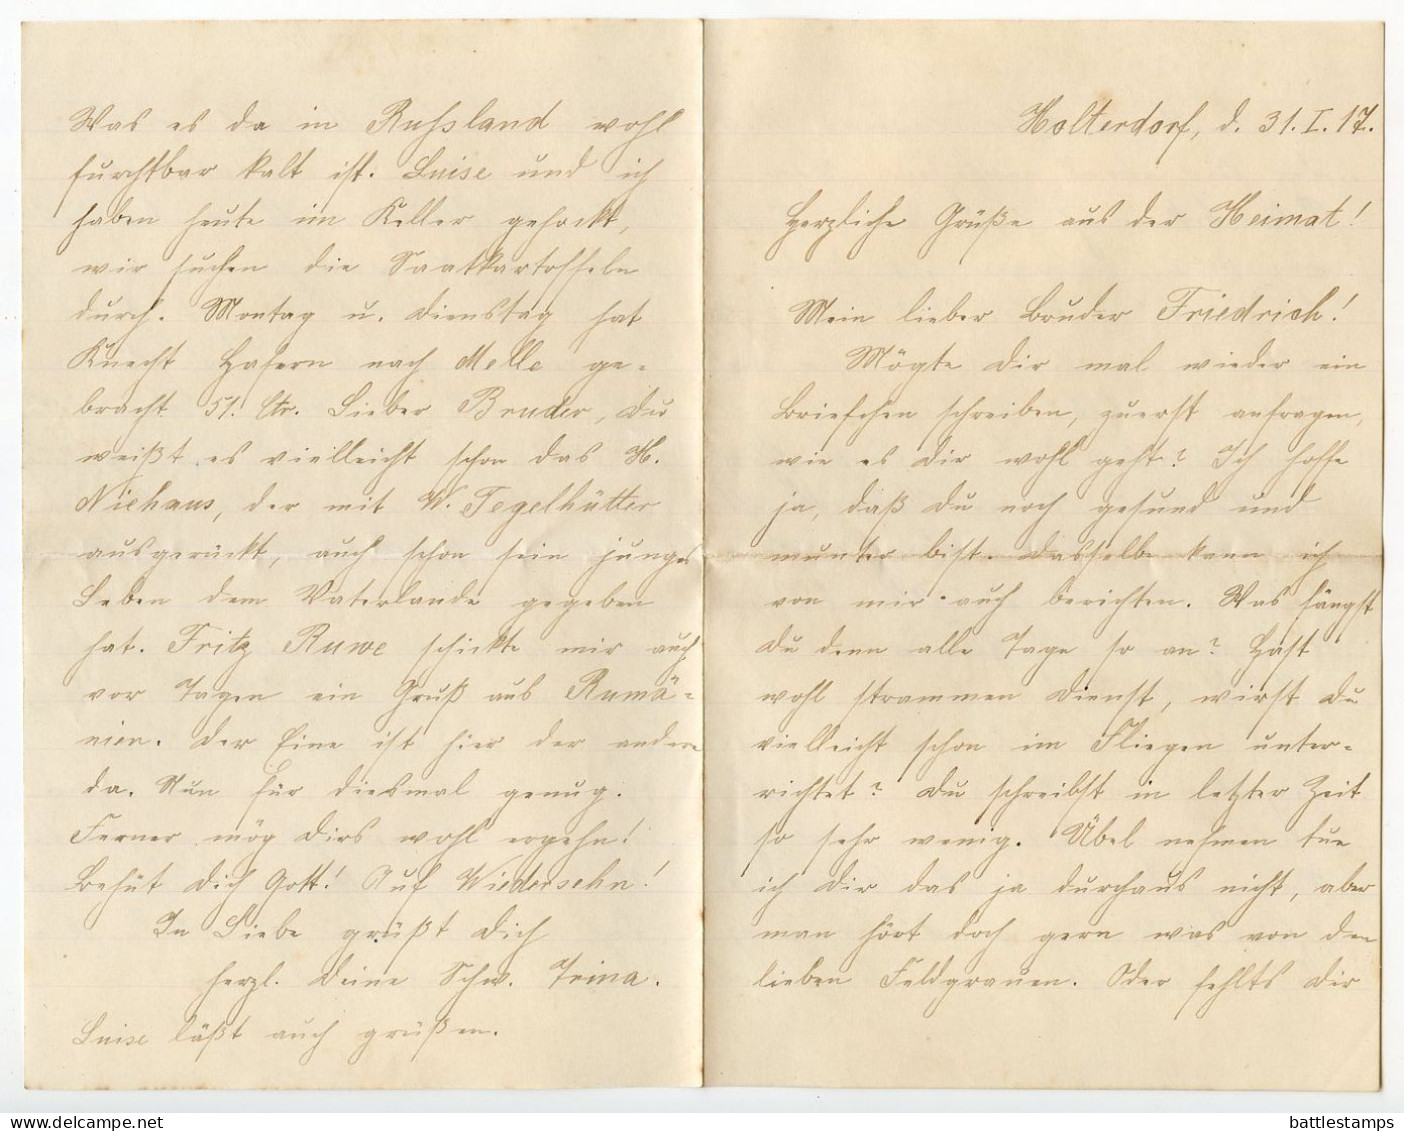 Holterdorf, d. 31.I.17.
Herzliche Grüße aus der Heimat!
Mein lieber Bruder Friedrich!
Mögte Dir mal wieder ein
Briefchen schreiben, zuerst anfragen,
wie es Dir wohl geht? Ich hoffe
ja, daß Du noch gesund und
munter bist. Dasselbe kann ich
von mir auch berichten. Was fängst
Du denn alle Tage so an? Hast
wohl strammen Dienst, wirst Du
vielleicht schon im Fliegen unter-
richtet? Du schreibst in letzter Zeit
so sehr wenig. Übel nehmen tue
ich Dir das ja durchaus nicht, aber
man hört doch gern was von den
lieben Feldgrauen. Oder fehlts Dir
Was es da in Russland wohl
furchtbar kalt ist. Luise und ich
haben heute im Keller gehockt,
wir suchen die Saatkartoffeln
durch. Montag u. Dienstag hat
Knecht Hafern nach Melle ge-
bracht 51. Ctr. Lieber Bruder, Du
weißt es vielleicht schon das H.
Niehaus, der mit W. Tegelhütter
ausgerückt, auch schon sein junges
Leben dem Vaterlande gegeben
hat. Fritz Ruwe schickte mir auch
vor Tagen ein Gruß aus Rumä-
nien. Der Eine ist hier der andere
da. Nun für diesmal genug.
Ferner mög Dirs wohl ergehn!
Behüt Dich Gott! Auf Wiedersehn!
In Liebe grüßt Dich
herzl. Deine Schw. Trina.
Luise läßt auch grüßen.
www.delcampe.net
battlestamps